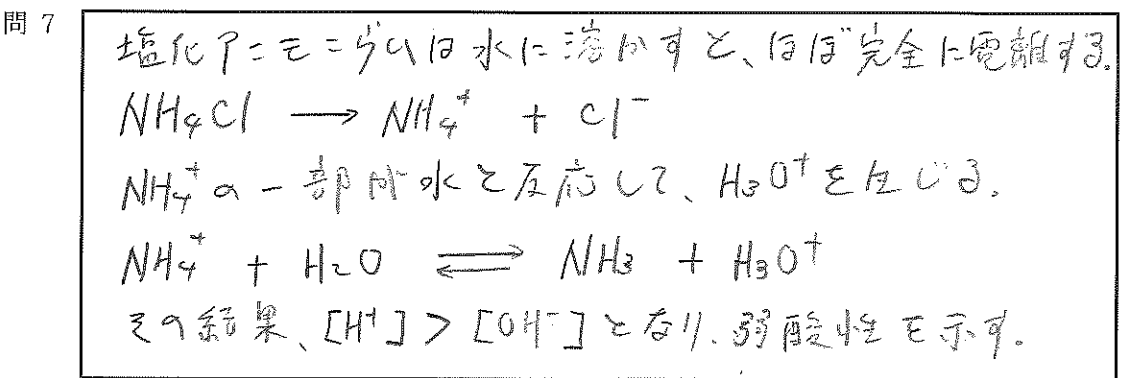 問 7
塩化アンモニウムは水に溶かすと、ほぼ完全に電離する。
NH₄Cl ⟶ NH₄⁺ + Cl⁻
NH₄⁺の一部が水と反応して、H₃O⁺を生じる。
NH₄⁺ + H₂O ⇌ NH₃ + H₃O⁺
その結果、[H⁺] > [OH⁻]となり、弱酸性を示す。